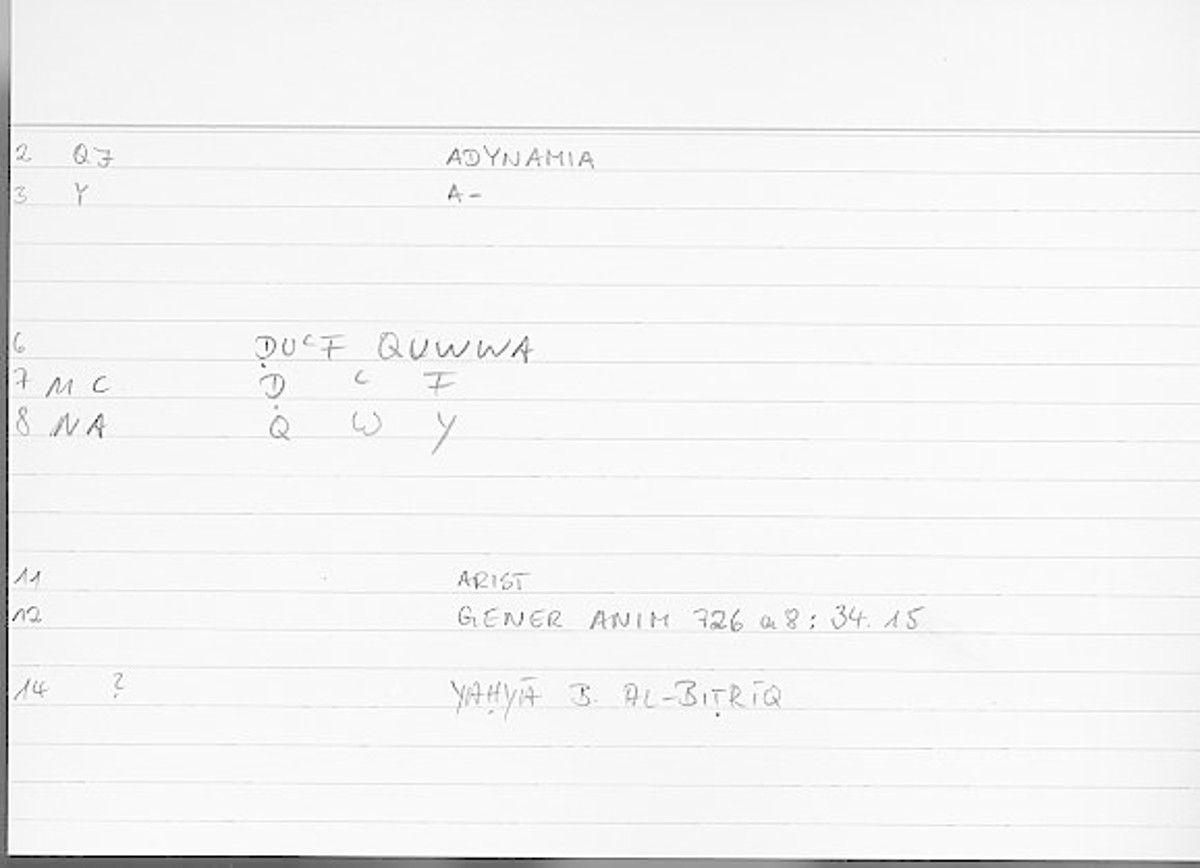 2 Q7 ADYNAMIA
3 Y A-
6 ḌUᶜF QUWWA
7 M C Ḍ ᶜ F
8 NA Q W Y
11 ARIST
12 GENER ANIM 726 a 8 : 34. 15
14 ? YAḤYĀ B. AL-BIṬRĪQ